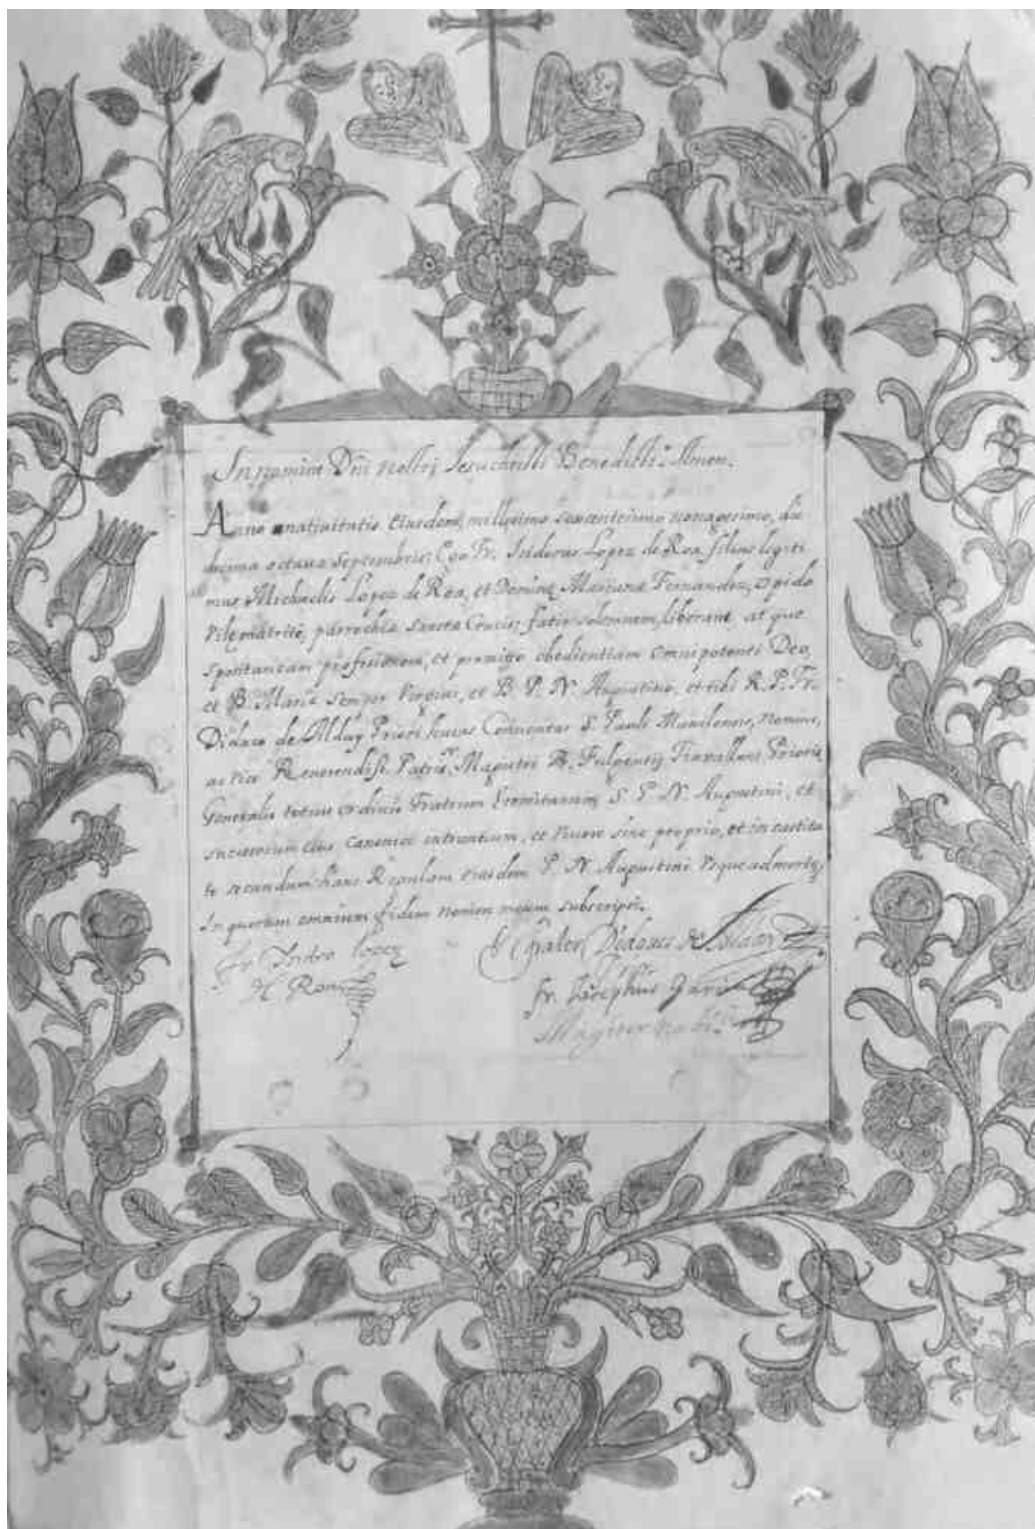 In nomine Dni nostri Jesuchristi Benedicti. Amen.
Anno a natiuitate eiusdem millesimo sexcentesimo nonagesimo, die
decima octaua Septembris; Ego Fr. Isidorus Lopez de Roa filius legiti
mus Michaelis Lopez de Roa, et Dominę Marianæ Fernandez, opido
Vile matriti, parrochia Sanctæ Crucis, fatio solemnem, liberam, atque
spontaneam profesionem, et promitto obedientiam omnipotenti Deo,
et B. Mariæ semper Virgini, et B. P. N. Augustino, et tibi R. P. Fr.
Didaco de Alday Priori huius Conuentus S. Pauli Manilensis, nomine,
ac vice Reverendiss. Patris Magistri Fulgentij Trauallani Prioris
Generalis totius ordinis Fratrum Eremitarum S. P. N. Augustini, et
sucessorum eius canonice intrantium, et viuere sine proprio, et in castita
te secundum hanc Regulam eiusdem P. N. Augustini vsque ad mortę
In quorum omnium fidem nomen meum subscripsi.
Fr. Isidro lopez
de Roa
Frater Didacus de Alday
Fr. Josephus
Magister